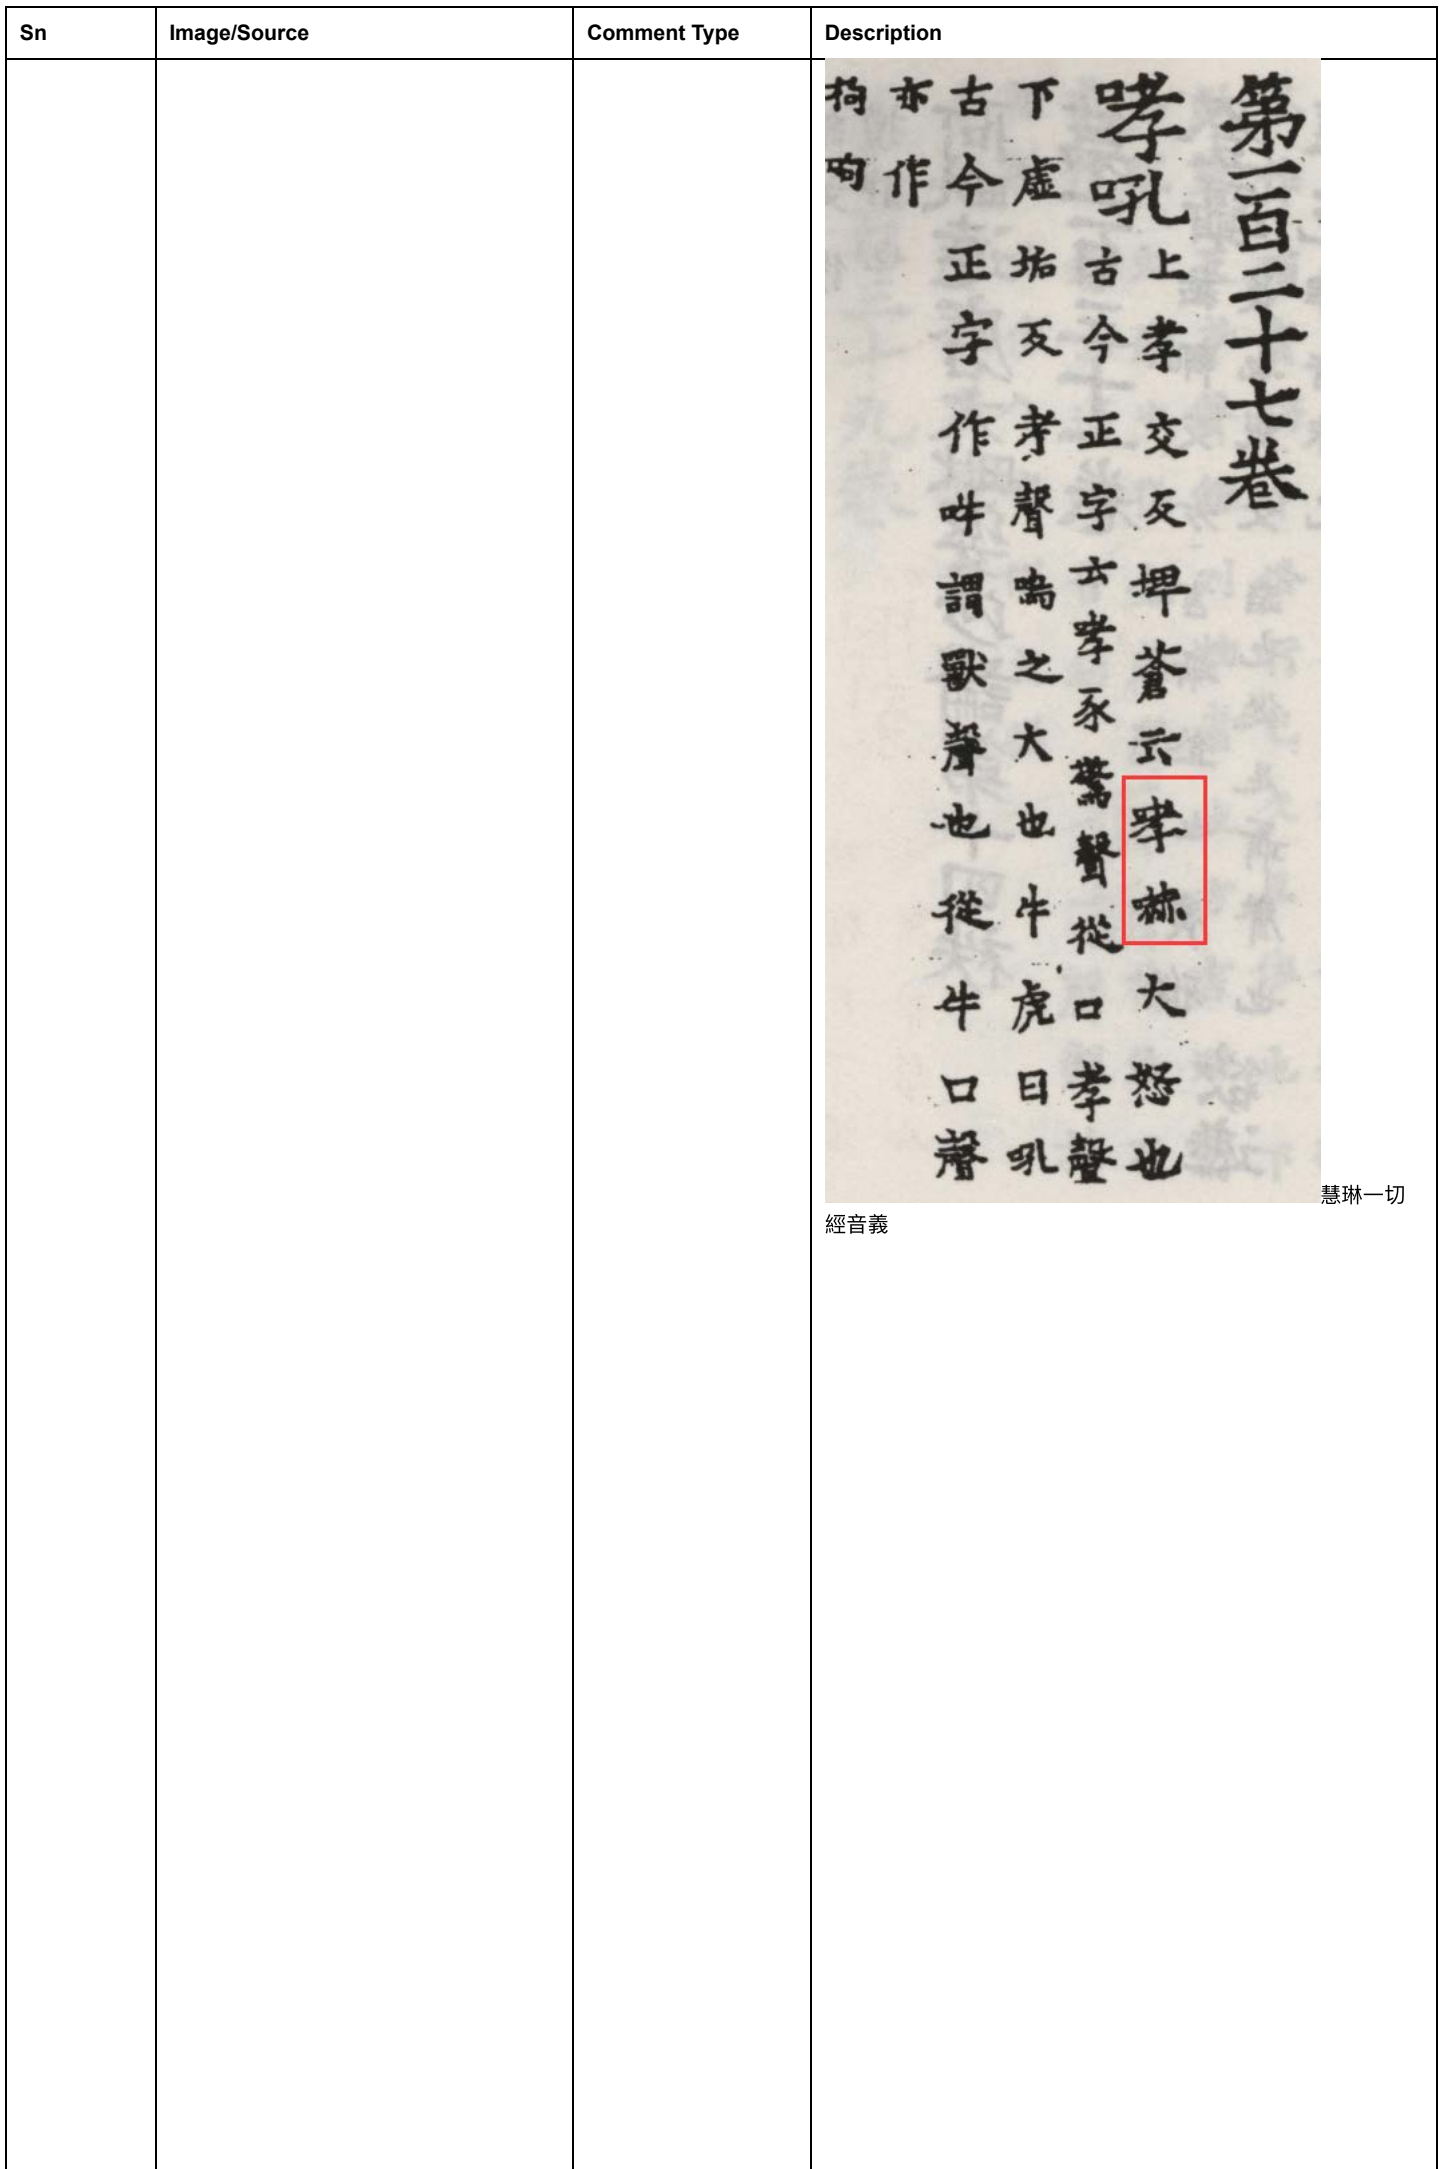 Sn Image/Source Comment Type Description
第一百二十七卷
哮吼
上孝交反埤蒼云哮㗭大怒也
古今正字云哮豕驚聲從口孝聲
下虛垢反考聲嗚之大也牛虎曰吼
古今正字作吽謂獸聲也從牛口聲
亦作
㸸呴
慧琳一切
經音義